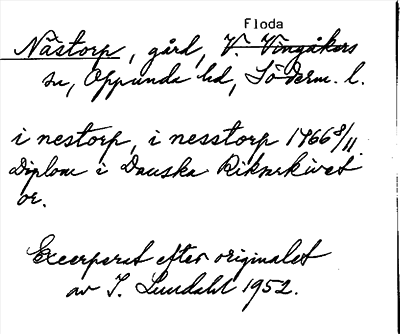 Floda
Nästorp, gård, V. Vingåkers
sn, Oppunda hd, Söderm. l.
i nestorp, i nesstorp 1466 8/11.
Diplom i Danska Riksarkivet
or.
Excerperat efter originalet
av I. Lundahl 1952.